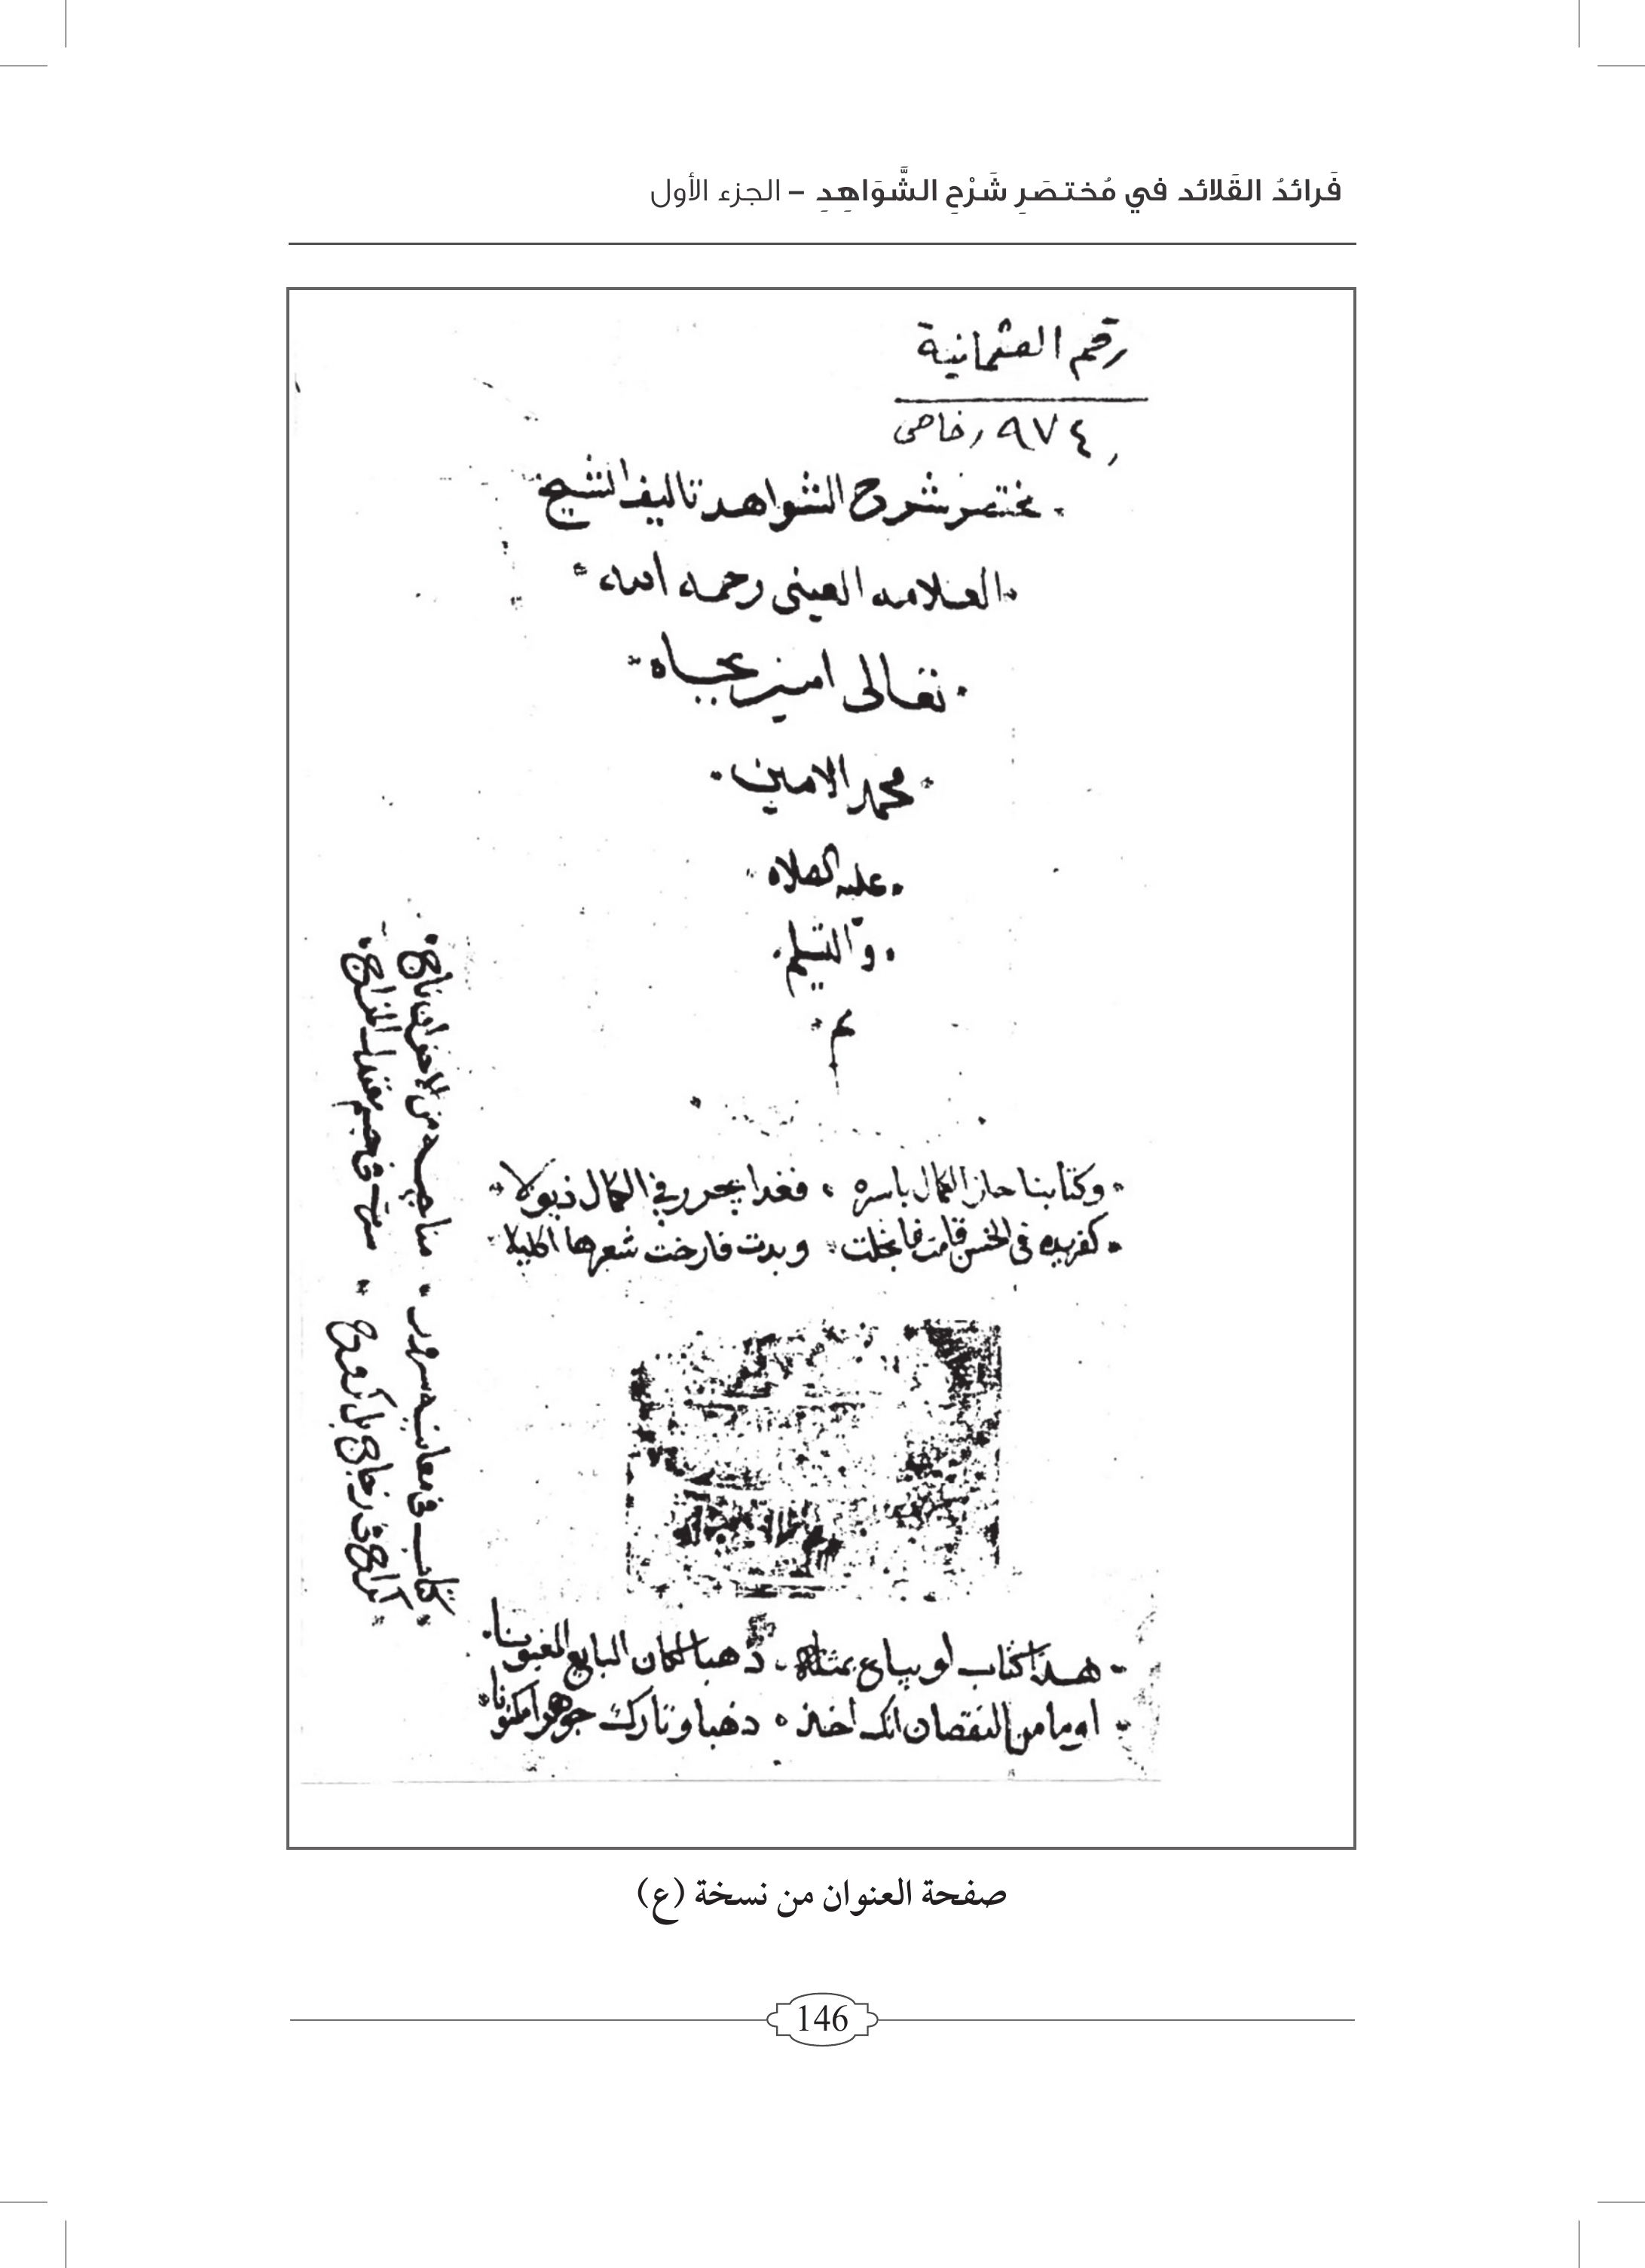 فَرائدُ القَلائد في مُختصَرِ شَرْحِ الشَّوَاهِدِ – الجزء الأول
رقم العثمانية
٩٧٤ر خاص
مختصر شرح الشواهد تاليف الشيخ
العلامه العينى رحمه الله
تعالى امين بجاه
محمد الامين
عليه الصلاه
والتسليم
م
وكتابنا حاز الكمال باسره فغدا يجرر في الكمال ذيولا
كفريده فى الحسن قامت فانجلت وبدت فارخت شعرها اكليلا
كتاب فى معانيه سرور مناجيه من الاحزان ناج
هذا كتاب لو يباع بمثله ذهبا لكان البايع المغبونا
اوما من النقصان انك اخذ ذهبا وتارك جوهرا مكنونا
صفحة العنوان من نسخة (ع)
146